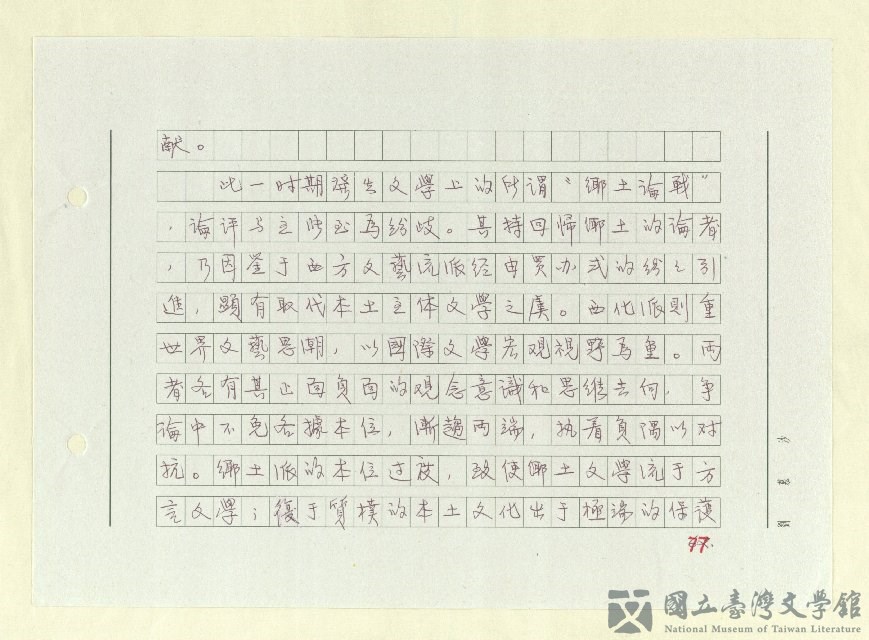 献。
此一时期發生文學上的所谓“鄉土論戰”
，論评与主张至為紛歧。其持回歸鄉土的論者
，乃因鉴于西方文藝流派经由買办式的纷纷引
進，顕有取代本土主体文學之虞。西化派則重
世界文藝思潮，以國際文學宏观視野為重。两
者各有其正面負面的观念意識和思维去向，争
論中不免各據本位，漸趨两端，执着負隅以对
抗。鄉土派的本位过度，致使鄉土文學流于方
言文學；復于質樸的本土文化出于極端的保護
77.
國立臺灣文學館
National Museum of Taiwan Literature